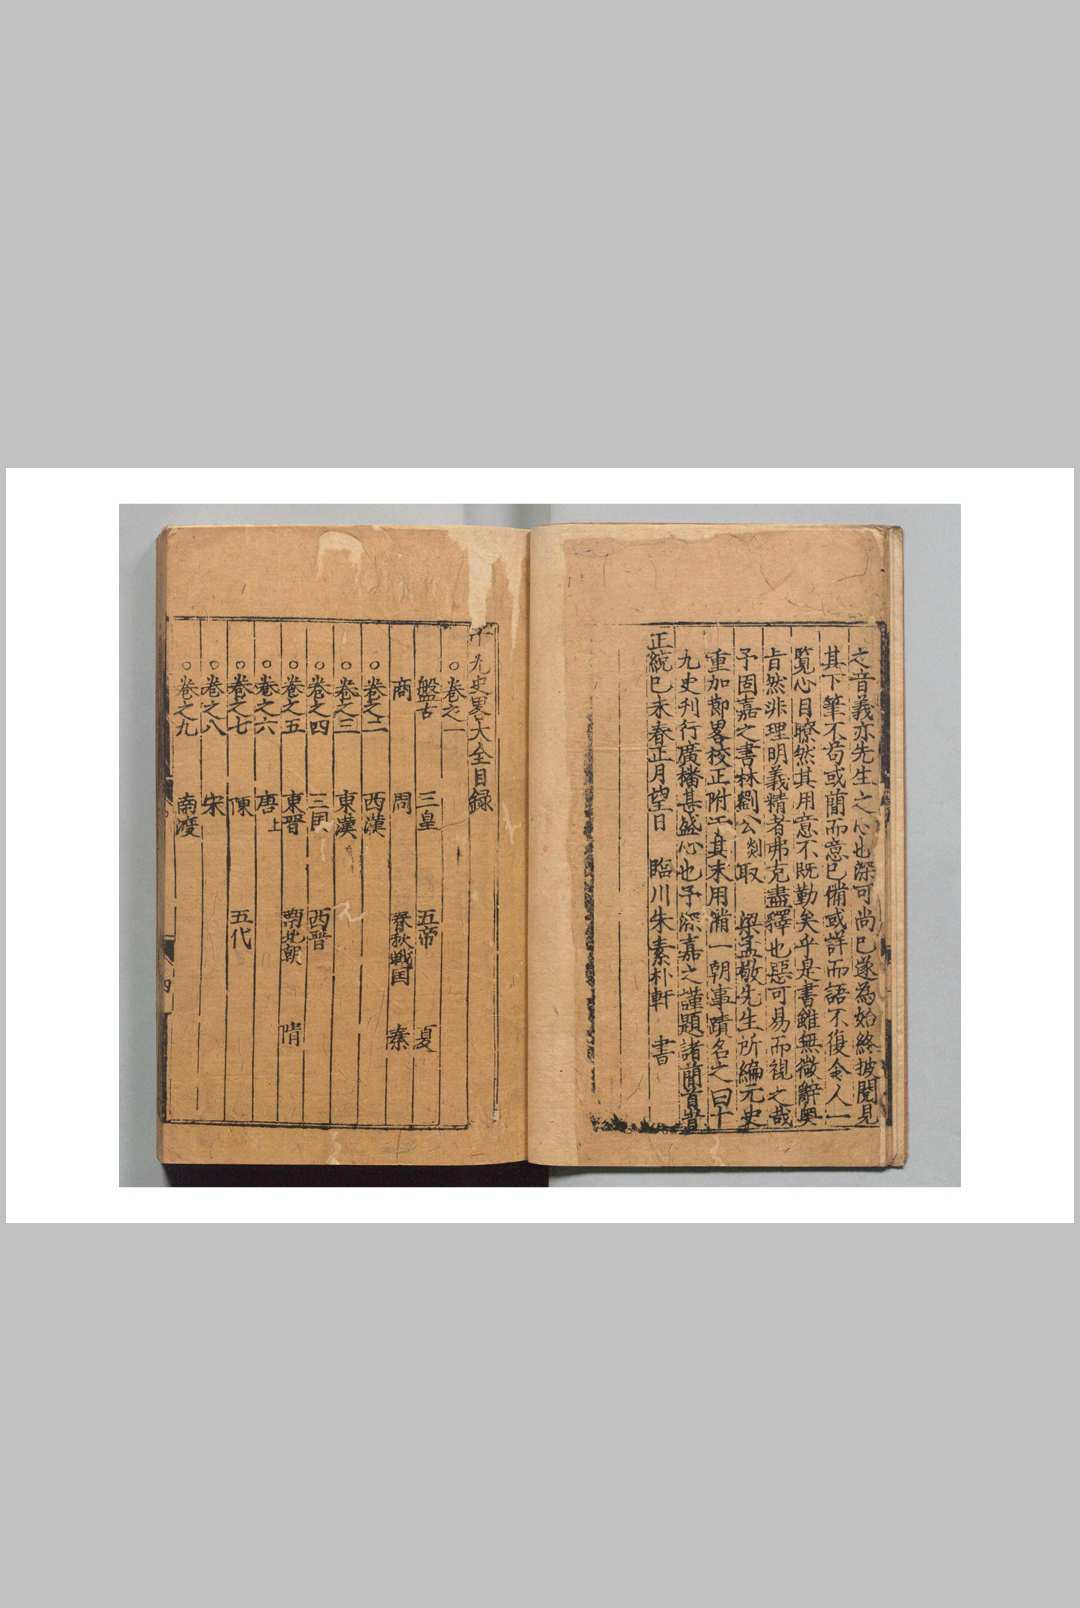 之音義亦先生之心也深可尚已遂為始終披閱見
其下筆不苟或簡而意已備或詳而語不復令人一
覧心目瞭然其用意不既勤矣乎是書雖無微辭奧
旨然非理明義精者弗克盡釋也惡可易而視之哉
予固嘉之書林劉公剡取 梁孟敬先生所編元史
重加節畧校正附于其末用瀰一朝事蹟名之曰十
九史刊行廣播甚盛心也予深嘉之謹題諸簡首旹
正統已未春正月望日 臨川朱素朴軒 書
十九史畧大全目録
○卷之一
盤古 三皇 五帝 夏
商 周 春秋戰国 秦
○卷之二 西漢
○卷之三 東漢
○卷之四 三囯 西晉
○卷之五 東晋 南北朝 隋
○卷之六 唐上
○卷之七 陳 五代
○卷之八 宋
○卷之九 南渡
四